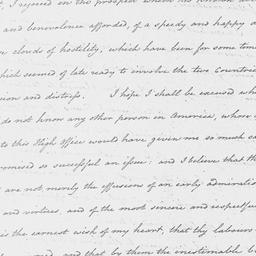 I rejoiced in the prospect which his known
and benevolence afforded, of a speedy and happy
clouds of hostility, which have been for some time
which seemed of late ready to involve the two Countries
and distress. I hope I shall be excused
do not know any other person in America, whose
to this High office would have given me so much
promised so successful an issue; and I believe that
are not merely the effusions of an early admiration
and virtues, and of the most sincere and respectful
is the earnest wish of my heart, that thy labours
and that by them the inestimable